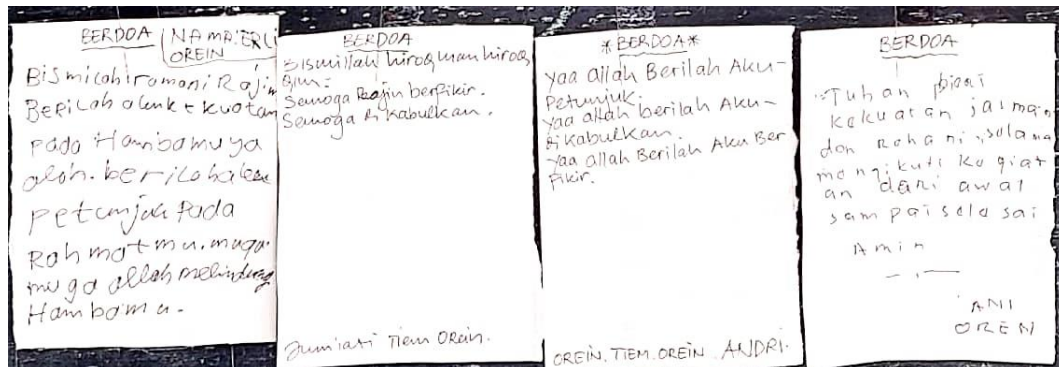 BERDOA
NAMA: ERLI
OREIN
BiSmicahiromaniRajim
Bericah akuk+kuatan
pada Hambamu ya
aloh. berilah
petunjuk Pada
Rahmatmu. muga
muga allah melindung
Hambamu.
BERDOA
Bismillah hiroq man hiroq
him:
Semoga Rajin berfikir.
Semoga dikabulkan.
Jumiati Tiem Orein.
*BERDOA*
Yaa allah Berilah Aku-
Petunjuk.
Yaa allah berilah Aku-
dikabulkan.
Yaa allah Berilah Aku Ber
Fikir.
OREIN. TIEM. OREIN. ANDRI.
BERDOA
"Tuhan
kekuatan jasmani
dan Rohani, selama
mengikuti kegiat
an dari awal
sampai selesai
Amin
ANI
OREN